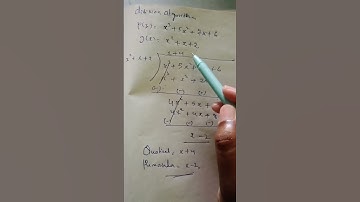 division algorithm
p(x) = x³ + 5x² + 7x + 6
g(x) = x² + x + 2
x + 4
x² + x + 2 ) x³ + 5x² + 6
x³ + x² +
(-) (-) (-)
4x² + 5x +
4x² + 4x + 8
(-) (-)
x - 2
Quotient, x + 4
Remainder = x - 2